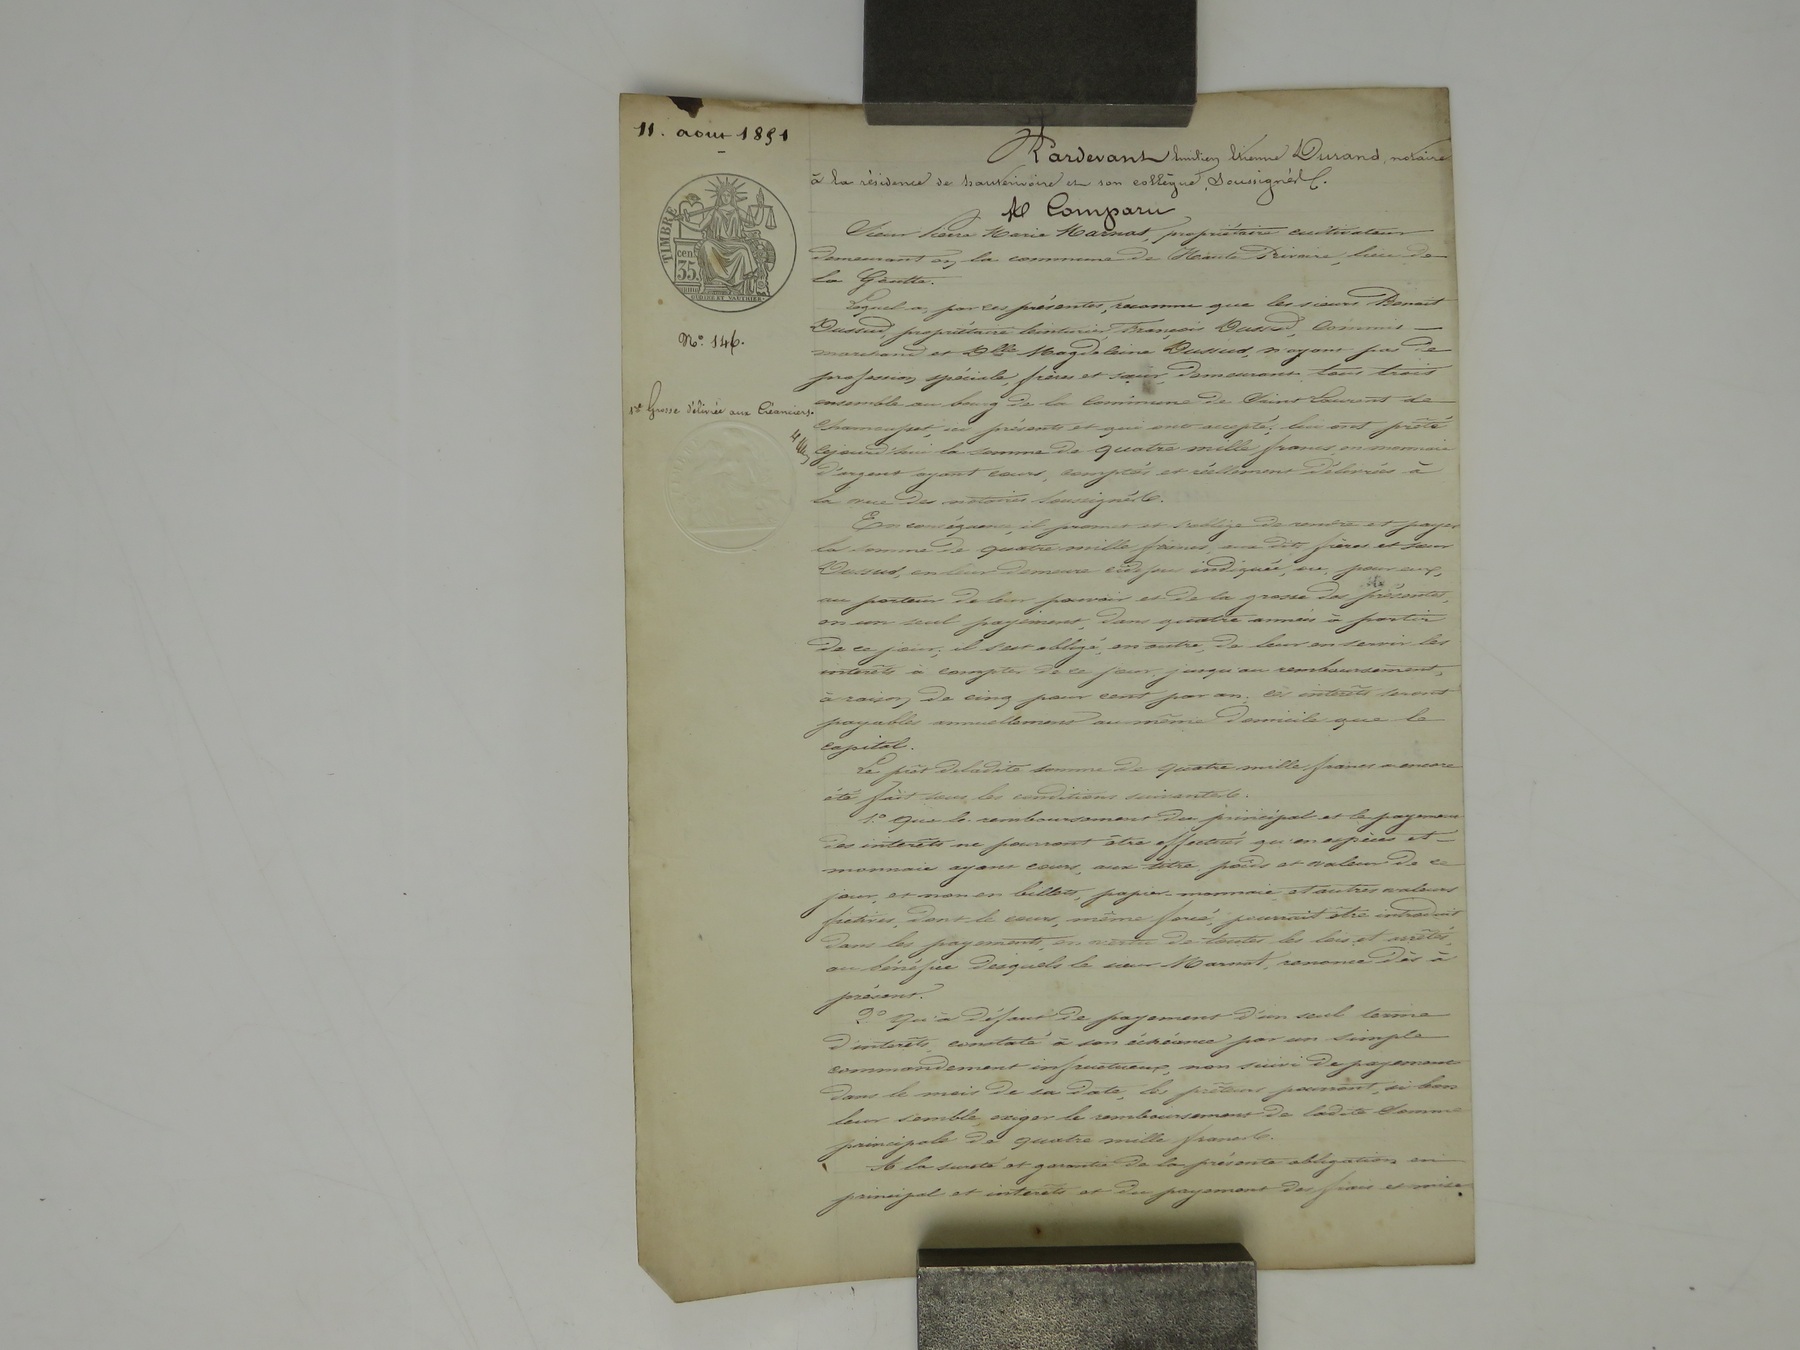 11. aout 1851
TIMBRE
cen.
35.
N.º 146.
1re Grosse délivrée aux Créanciers.
Pardevant Etienne Durand, notaire
à la résidence de hauterivoire et son collègue, Soussignés.
A Comparu
Sieur Pierre Marie Marnat, propriétaire cultivateur
demeurant en la commune de Haute Rivoire, lieu de
la Goutte.
Lequel a, par ces présentes, reconnu que les sieurs Benoit
Dussud, propriétaire teinturier, François Dussud, Commis
marchand et Dlle Magdeleine Dussud, n'ayant pas de
profession spéciale, frères et sœur, demeurant tous trois
ensemble au bourg de la Commune de Saint Laurent de
Chamousset, ici présents et qui ont accepté; lui ont prêté
cejourd'hui la somme de quatre mille francs, en monnaie
d'argent ayant cours, comptés et réellement délivrés à
la vue des notaires soussignés.
En conséquence, il promet et s'oblige de rendre et payer
la somme de quatre mille francs, aux dits frères et sœur
Dussud, en leur demeure cidessus indiquée, ou, pour eux,
au porteur de leur pouvoir et de la grosse des présentes,
en un seul payement, dans quatre années à partir
de ce jour; il s'est obligé, en outre, de leur en servir les
intérêts à compter de ce jour, jusqu'au remboursement,
à raison de cinq pour cent par an. Ces intérêts seront
payables annuellement au même domicile que le
capital.
Le prêt de ladite somme de quatre mille francs a encore
été fait sous les conditions suivantes.
1.º Que le remboursement du principal et le payement
des intérêts ne pourront être effectués qu'en espèces et
monnaie ayant cours, aux titre, poids et valeur de ce
jour, et non en billets, papier-monnaie et autres valeurs
fictives, dont le cours, même forcé, pourrait être introduit
dans les payements, en vertu de toutes les lois et arrêtés,
au bénéfice desquels le sieur Marnat, renonce dès à
présent.
2.º Qu'à défaut de payement d'un seul terme
d'intérêts constaté à son échéance par un simple
commandement infructueux, non suivi de payement
dans le mois de sa date, les prêteurs pourront, si bon
leur semble, exiger le remboursement de ladite Somme
principale de quatre mille francs.
A la sureté et garantie de la présente obligation en
principal et intérêts et du payement des frais et mise